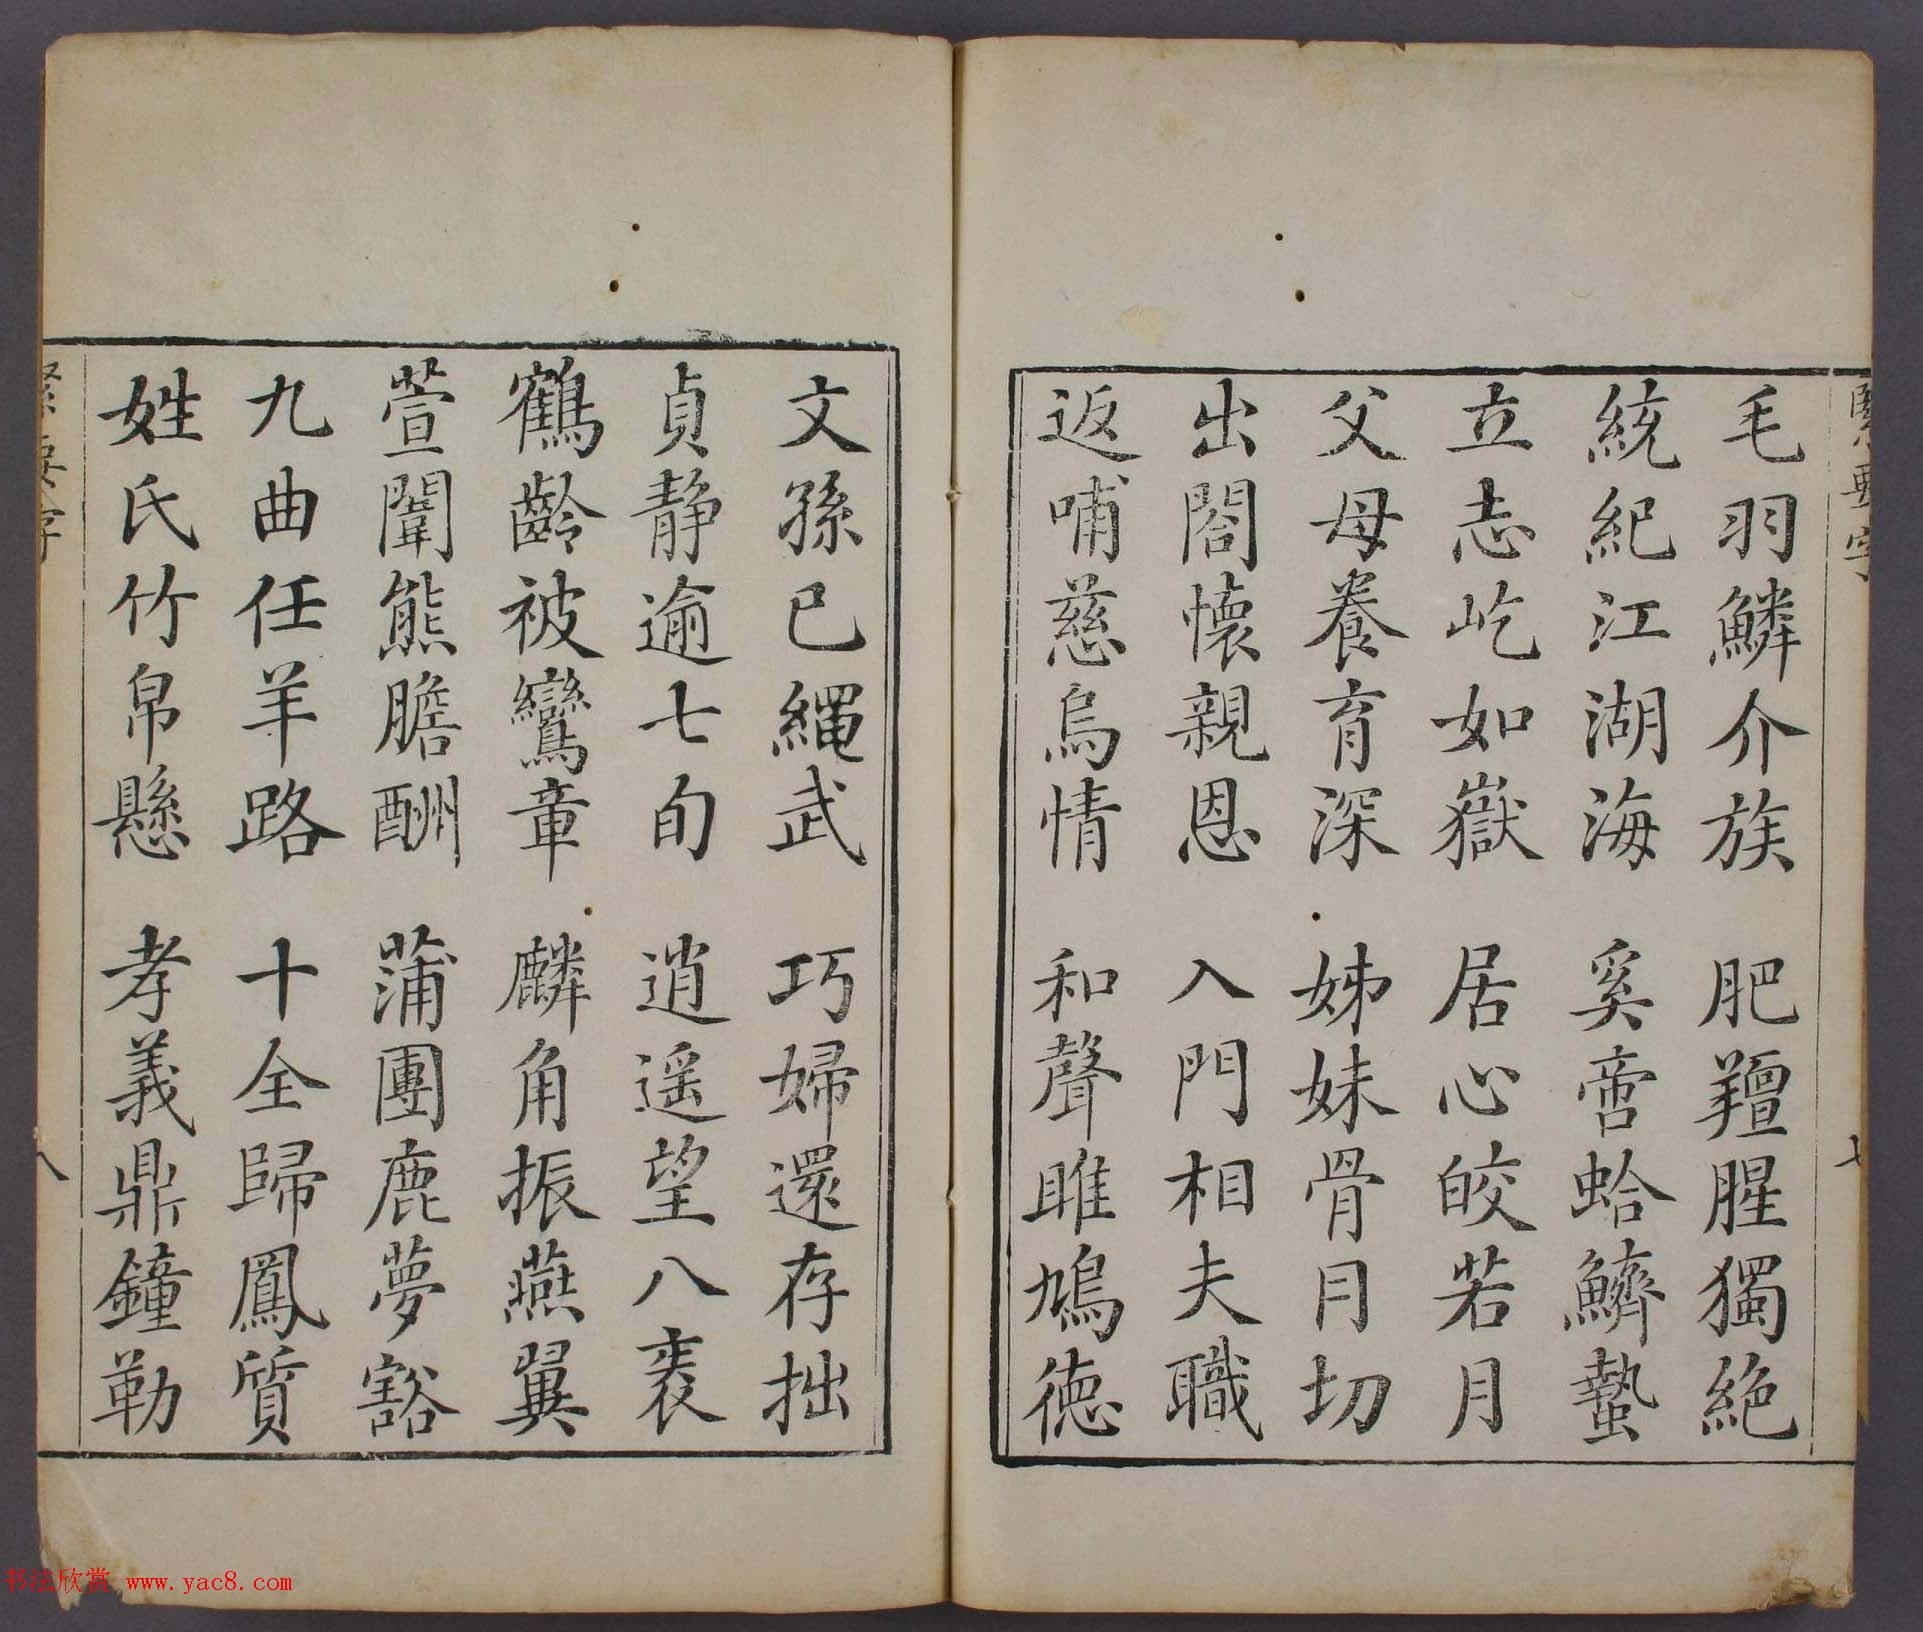 毛羽鱗介族 肥羶腥獨絶
統紀江湖海 奚啻蛤鱭蟄
立志屹如嶽 居心皎若月
父母養育深 姊妹骨月切
出閤懷親恩 入門相夫職
返哺慈烏情 和聲雎鳩德
文孫已繩武 巧婦還存拙
貞静逾七旬 逍遥望八袠
鶴齡被鸞章 麟角振燕翼
萱闈熊膽酬 蒲團鹿夢豁
九曲任羊路 十全歸鳳質
姓氏竹帛懸 孝義鼎鐘勒
八
书法欣赏 www.yac8.com